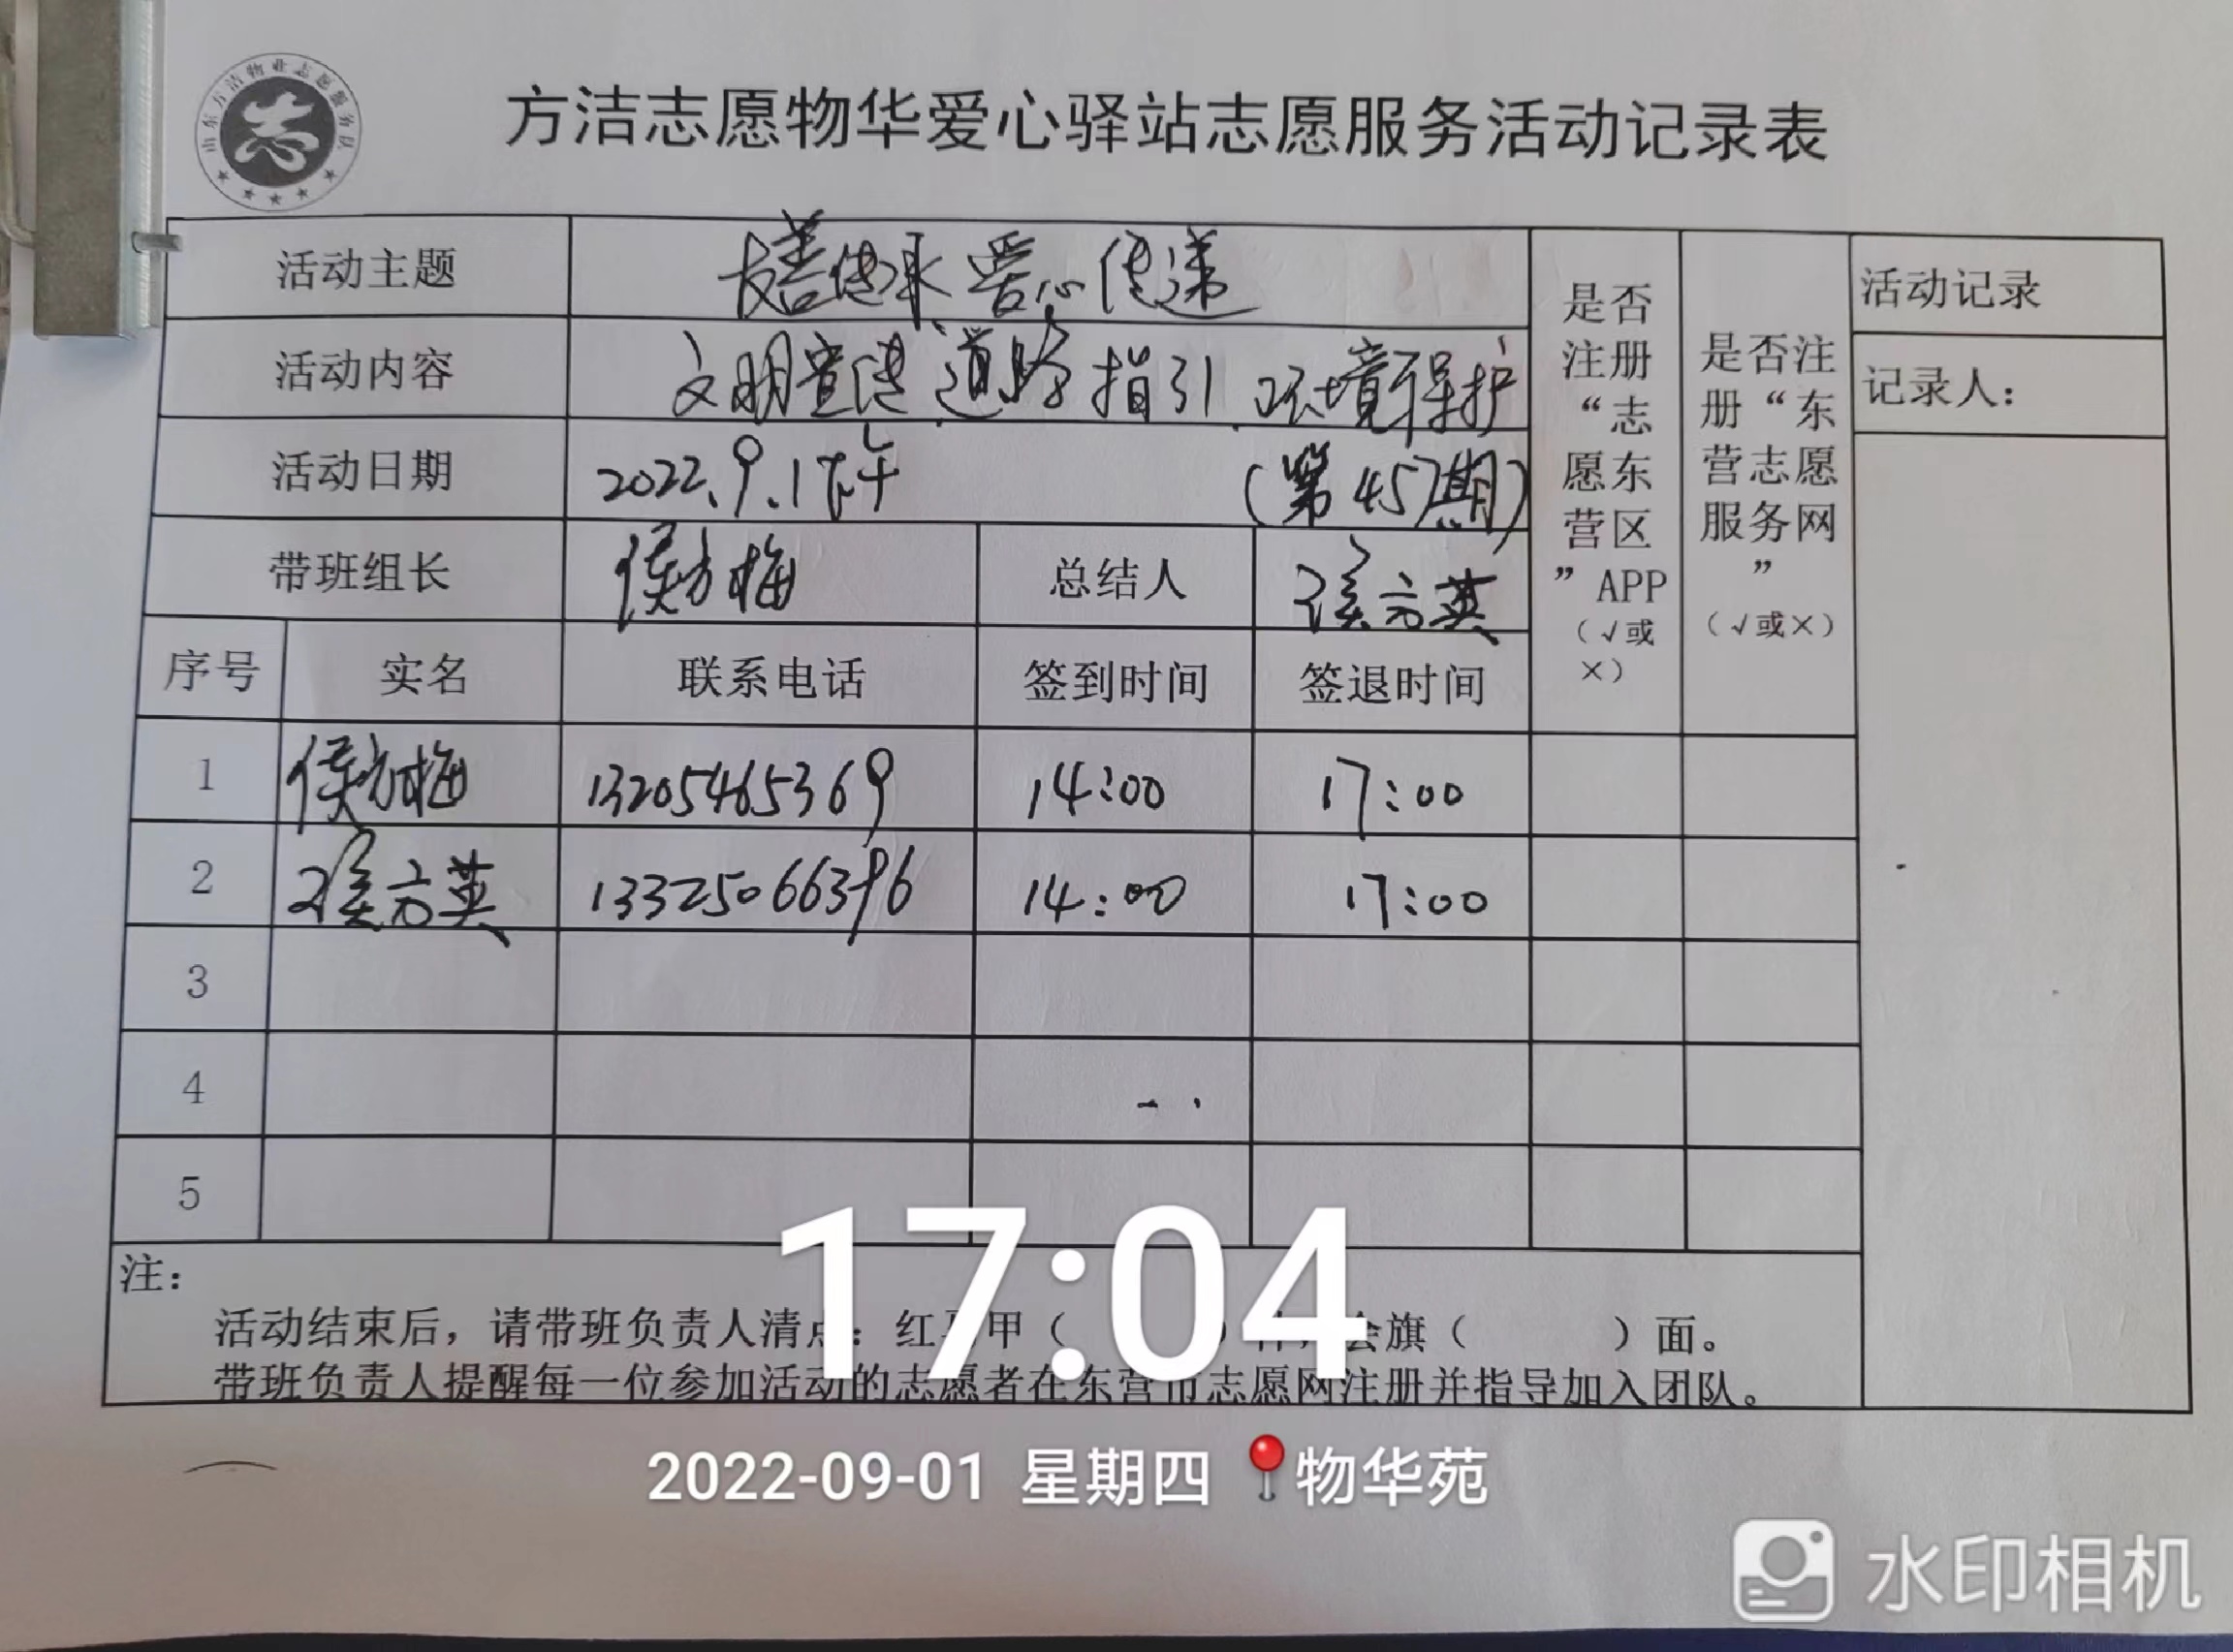 山东方洁物业志愿服务队
志
方洁志愿物华爱心驿站志愿服务活动记录表
活动主题 友善传承 爱心传递
活动内容 文明宣传 道路指引 环境保护
活动日期 2022.9.1下午 (第457期)
带班组长 侯方梅 总结人 侯方英
是否注册“志愿东营区”APP(√或×)
是否注册“东营志愿服务网”(√或×)
活动记录
记录人:
序号 实名 联系电话 签到时间 签退时间
1 侯方梅 13205465369 14:00 17:00
2 侯方英 13325066396 14:00 17:00
3
4
5
注:
活动结束后，请带班负责人清点：红马甲（ ）件，会旗（ ）面。
带班负责人提醒每一位参加活动的志愿者在东营市志愿网注册并指导加入团队。
17:04
2022-09-01 星期四 物华苑
水印相机